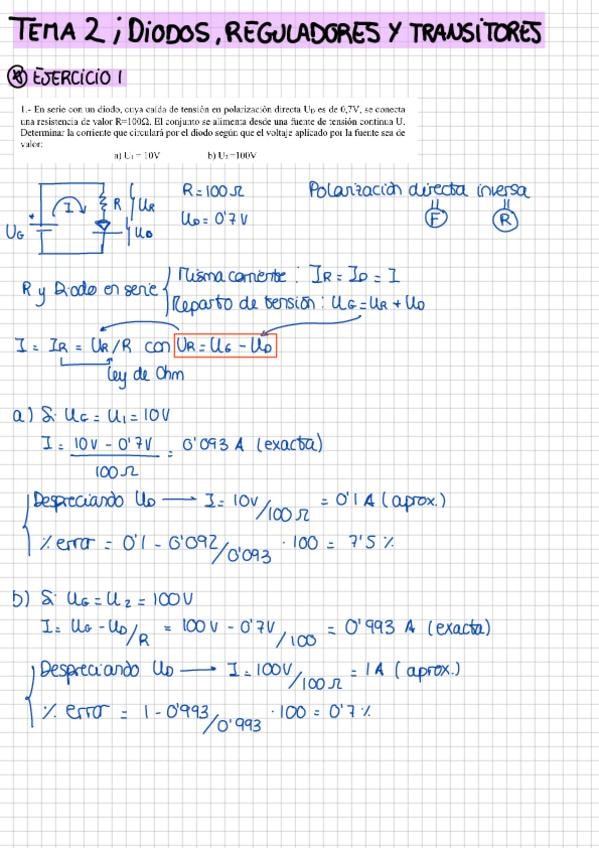 TEMA 2; DIODOS, REGULADORES Y TRANSITORES
* EJERCICIO 1
1.- En serie con un diodo, cuya caída de tensión en polarización directa UD es de 0,7V, se conecta
una resistencia de valor R=100Ω. El conjunto se alimenta desde una fuente de tensión continua U.
Determinar la corriente que circulará por el diodo según que el voltaje aplicado por la fuente sea de
valor:
a) U1 = 10V b) U2 =100V
UG + I R UR UD
R = 100 Ω
UD = 0'7 V
Polarización directa inversa
F R
R y Diodo en serie
Misma corriente : IR = ID = I
Reparto de tensión : UG = UR + UD
I = IR = UR/R con UR = UG - UD
ley de Ohm
a) Si UG = U1 = 10V
I = 10V - 0'7V / 100Ω = 0'093 A (exacta)
Despreciando UD → I = 10V/100Ω = 0'1 A (aprox.)
% error = 0'1 - 0'092/0'093 · 100 = 7'5 %
b) Si UG = U2 = 100V
I = UG - UD/R = 100V - 0'7V/100 = 0'993 A (exacta)
Despreciando UD → I = 100V/100Ω = 1A (aprox.)
% error = 1 - 0'993/0'993 · 100 = 0'7 %